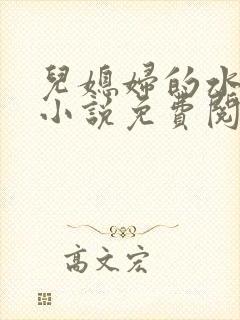 兒媳婦的水
小說免費閱
高文宏